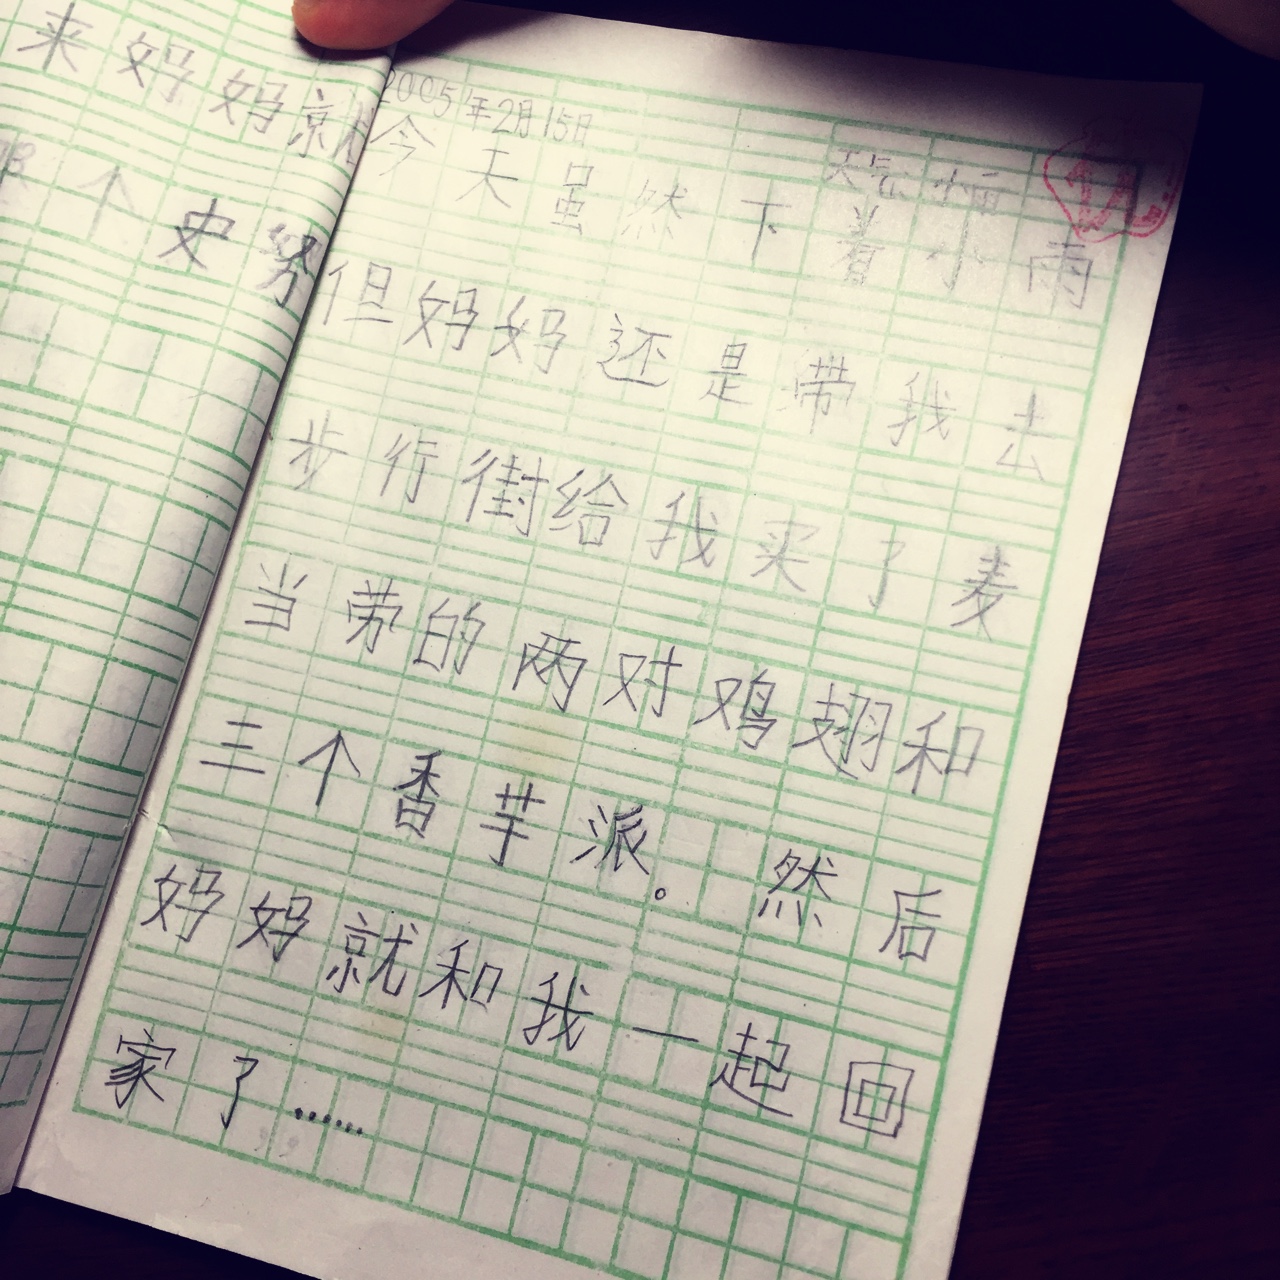 来妈妈就
个史努
2005年2月15日
天气 小雨
今天虽然下着小雨
但妈妈还是带我去
步行街给我买了麦
当劳的两对鸡翅和
三个香芋派。然后
妈妈就和我一起回
家了……